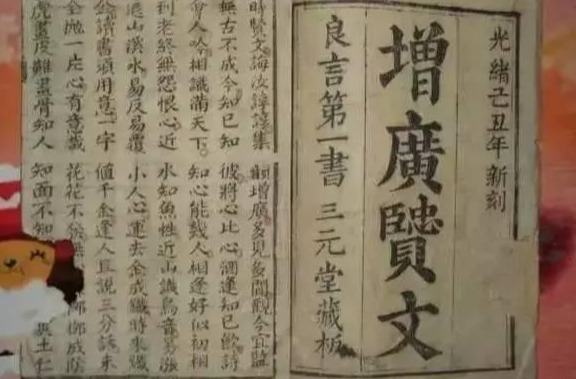 光緒己丑年新刻
增廣贒文
良言第一書 三元堂藏板
時賢文誨汝諄諄集韻增廣多見多聞觀今宜監
無古不成今知已知彼將心比心酒逢知已飲詩
會人吟相識滿天下知心能幾人相逢好似初相
到老終無怨恨心近水知魚性近山識鳥音易漲
退山溪水易反易覆小人心運去金成鐵時來鐵
金讀書須用意一字值千金逢人且說三分話未
全拋一片心有意栽花花不發無柳柳成陰
虎畫皮難畫骨知人知面不知土仁